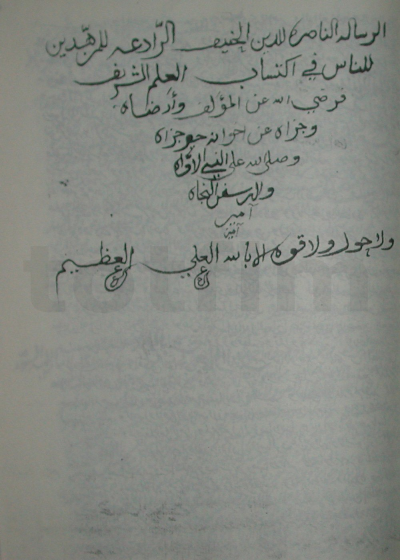 الرسالة الناصرة للدين الحنيف الرّادعه للمزهّدين
للناس في اكتساب العلم الشريف
فرضي الله عن المؤلف وأرضاه
وجزاه عن اخوانه خير جزاه
وصلى الله على النبي الأوّاه
وآله سفن النجاه
آمين
آمين
ولا حول ولا قوة الا بالله العلي العظيم